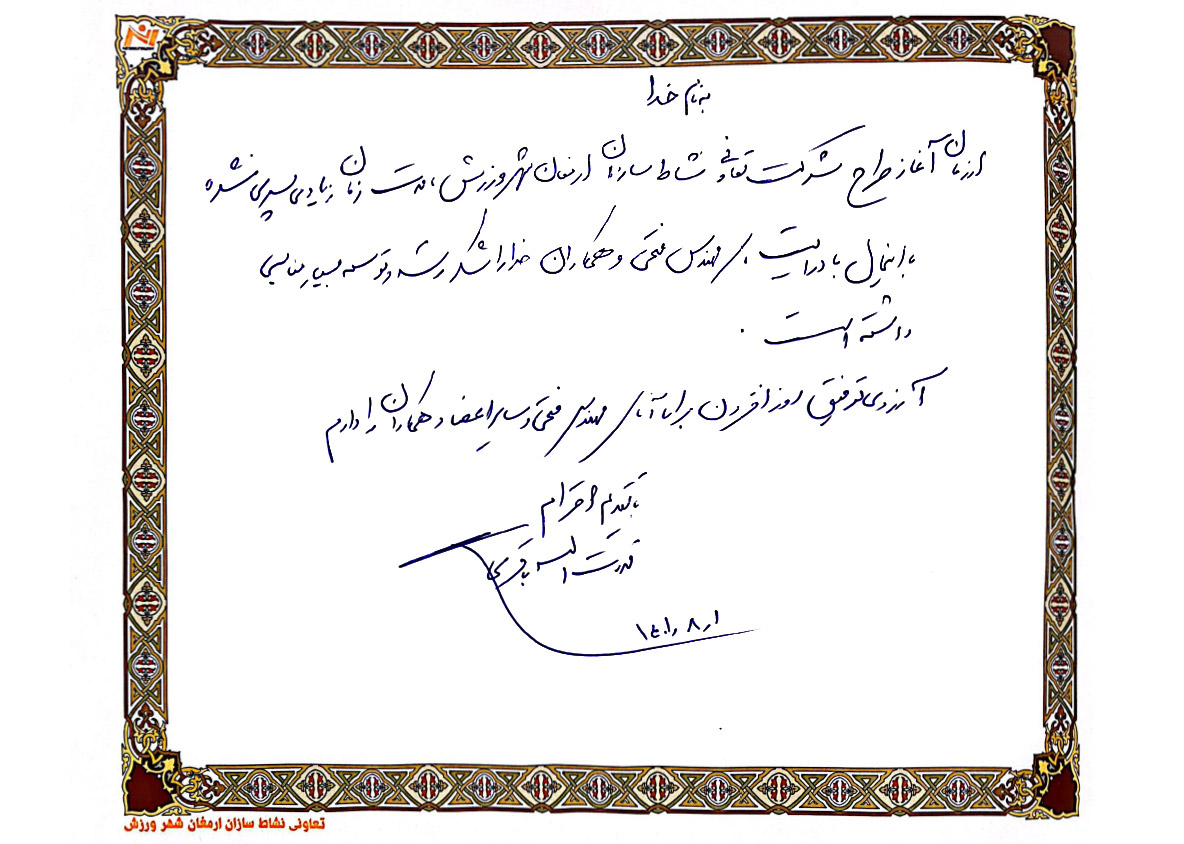 به نام خدا
از زمان آغاز طرح شرکت تعاونی نشاط سازان ارمغان شهر ورزش، مدت زمان زیادی سپری نشده
با اینحال با درایت مهندس فتحی و همکاران خدا را شکر رشد و توسعه بسیار مناسبی
داشته است.
آرزوی توفیق روز افزون برای آقای مهندس فتحی و سایر اعضا و همکاران را دارم
با تقدیم احترام
قدرت اله باقری
۱۴۰۱/۸/۱
تعاونی نشاط سازان ارمغان شهر ورزش